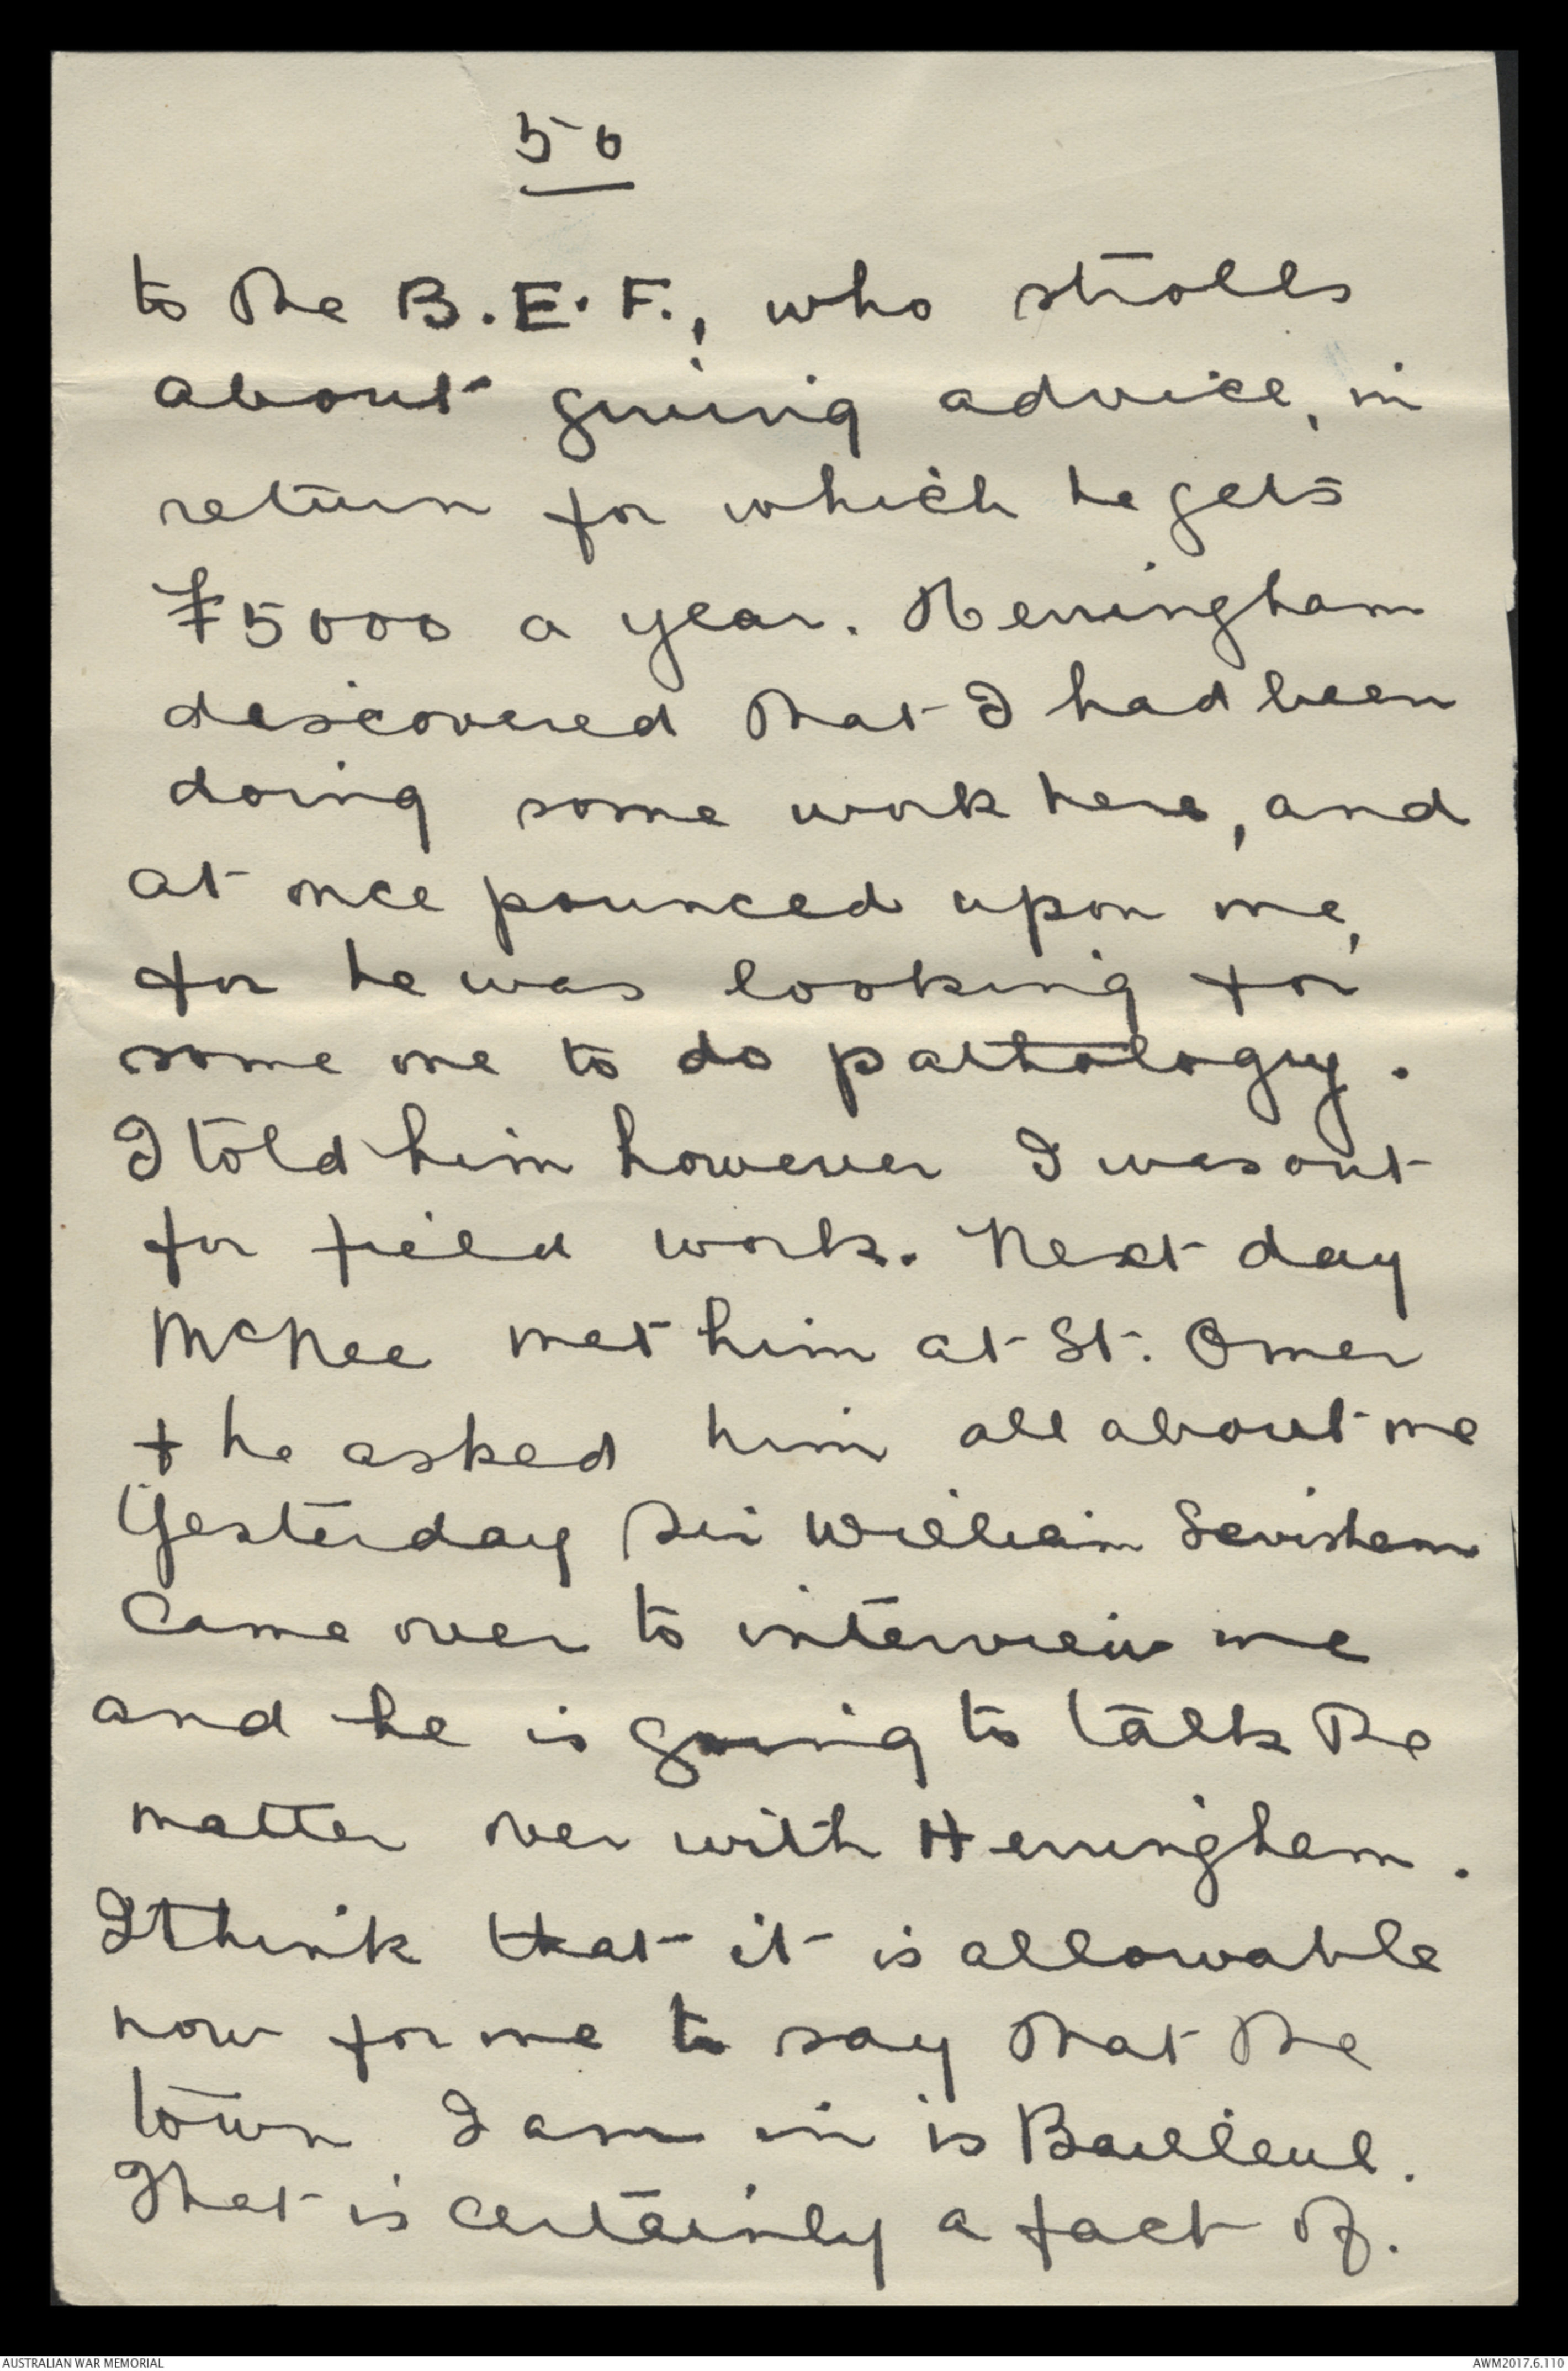 50
to the B.E.F., who strolls
about giving advice, in
return for which he gets
£5000 a year. Herringham
discovered that I had been
doing some work here, and
at once pounced upon me,
for he was looking for
some one to do pathology.
I told him however I was out
for field work. Next day
McNee met him at St. Omer
+ he asked him all about me
Yesterday Sir William
came over to interview me
and he is going to talk the
matter over with Herringham.
I think that it is allowable
now for me to say that the
town I am in is Bailleul.
That is certainly a fact of.
AUSTRALIAN WAR MEMORIAL
AWM2017.6.110